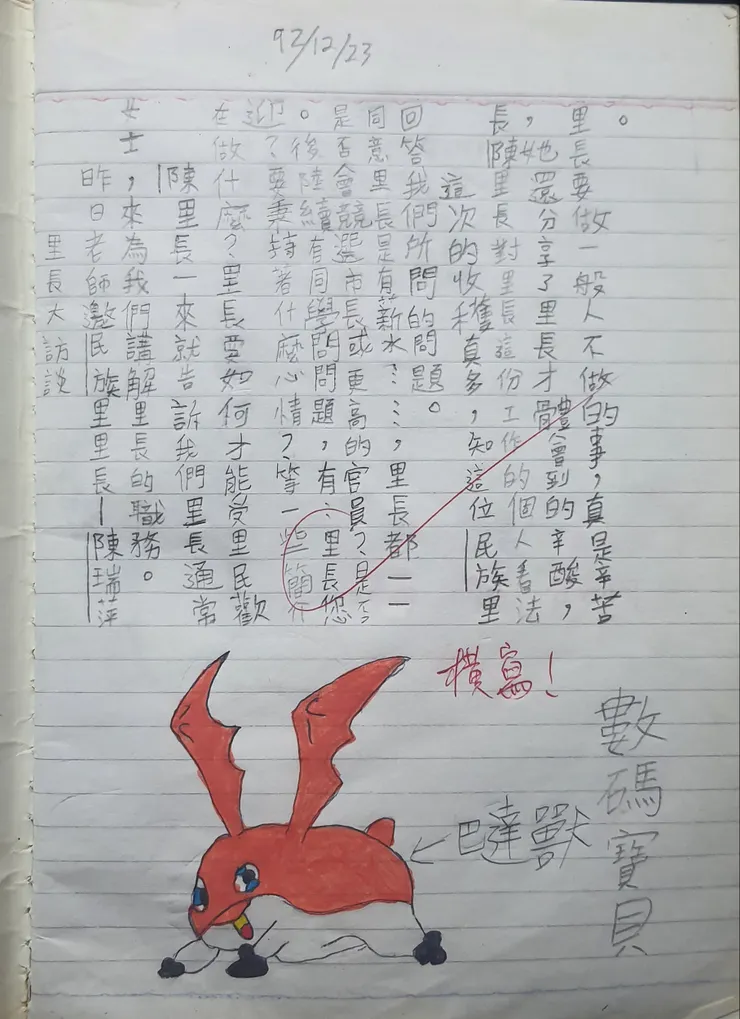 92/12/23
里長大訪談
昨日老師邀民族里里長—陳瑞萍
女士，來為我們講解里長的職務。
陳里長一來就告訴我們里長通常
在做什麼？里長要如何才能受里民歡
迎？要秉持著什麼心情？等一些簡介
。後陸續有同學問問題，有：里長您
是否會競選市長或更高的官員？是否
同意里長是有薪水？……，里長都一一
回答我們所問的問題。
這次的收穫真多，知這位民族里
長陳里長對里長這份工作的個人看法
，她還分享了里長才體會到的辛酸，
里長要做一般人不做的事，真是辛苦
。
橫寫！
數碼寶貝
巴達獸